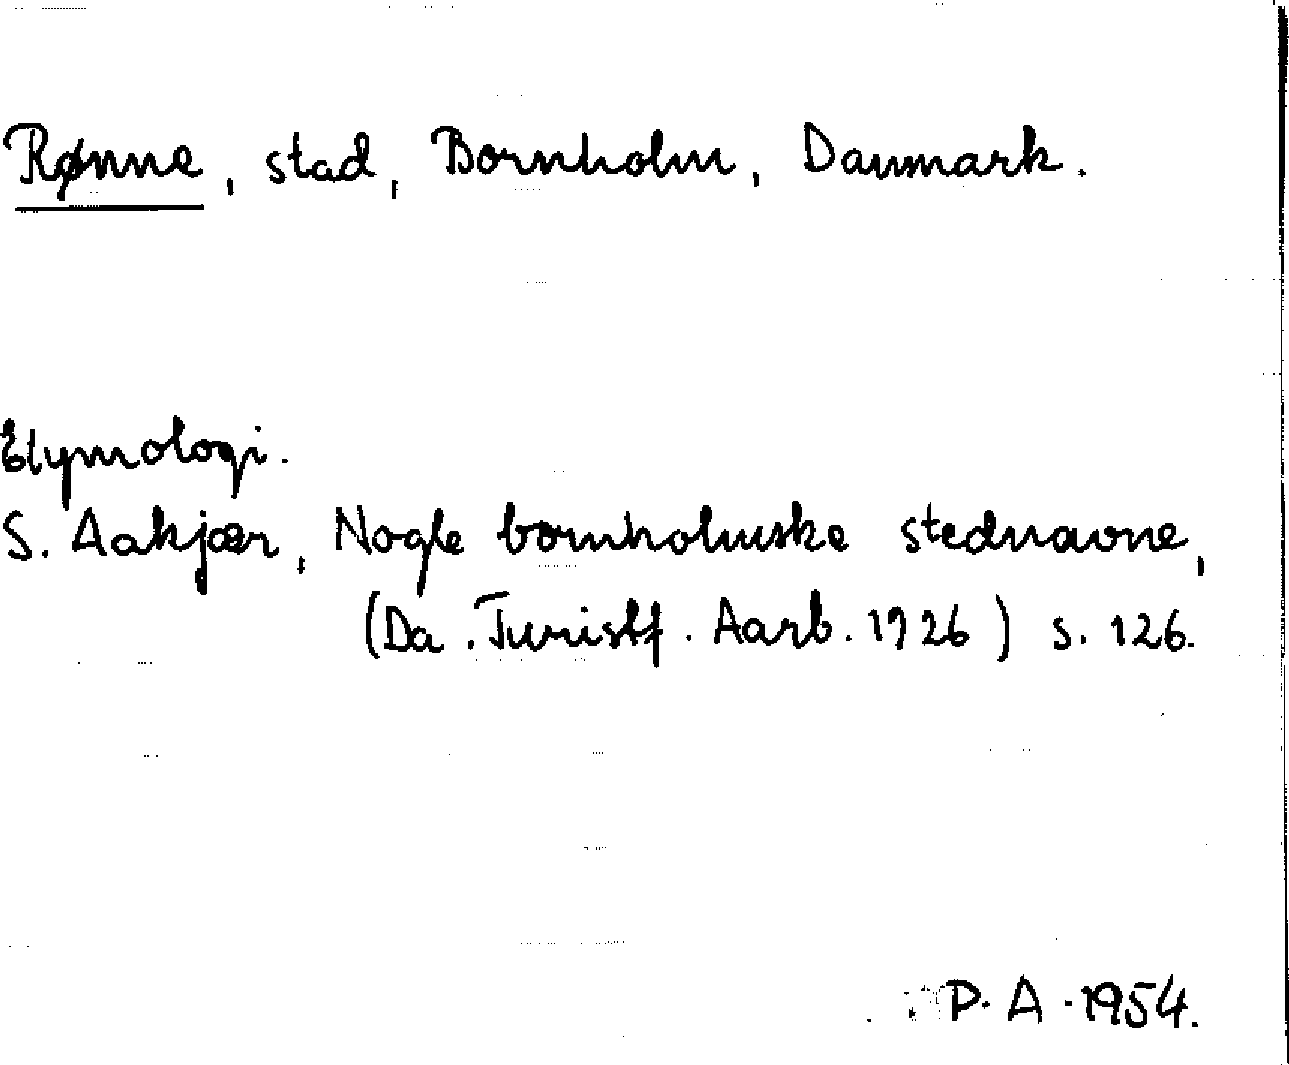 Rønne, stad, Bornholm, Danmark.
Etymologi.
S. Aakjær, Nogle bornholmske stednavne,
(Da. Turistf. Aarb. 1926) s. 126.
P. A. 1954.